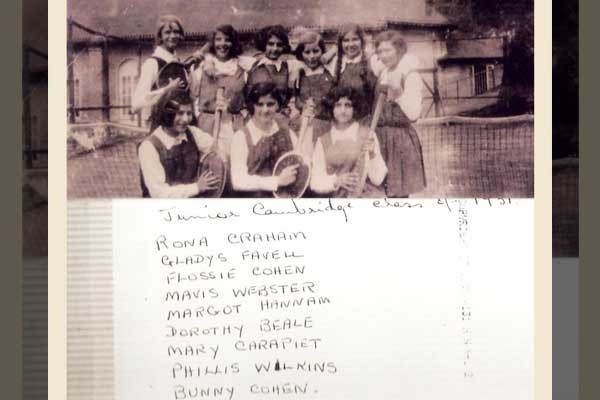 Junior Cambridge class of 1931
RONA GRAHAM
GLADYS FAVELL
FLOSSIE COHEN
MAVIS WEBSTER
MARGOT HANNAM
DOROTHY BEALE
MARY CARAPIET
PHILLIS WILKINS
BUNNY COHEN.